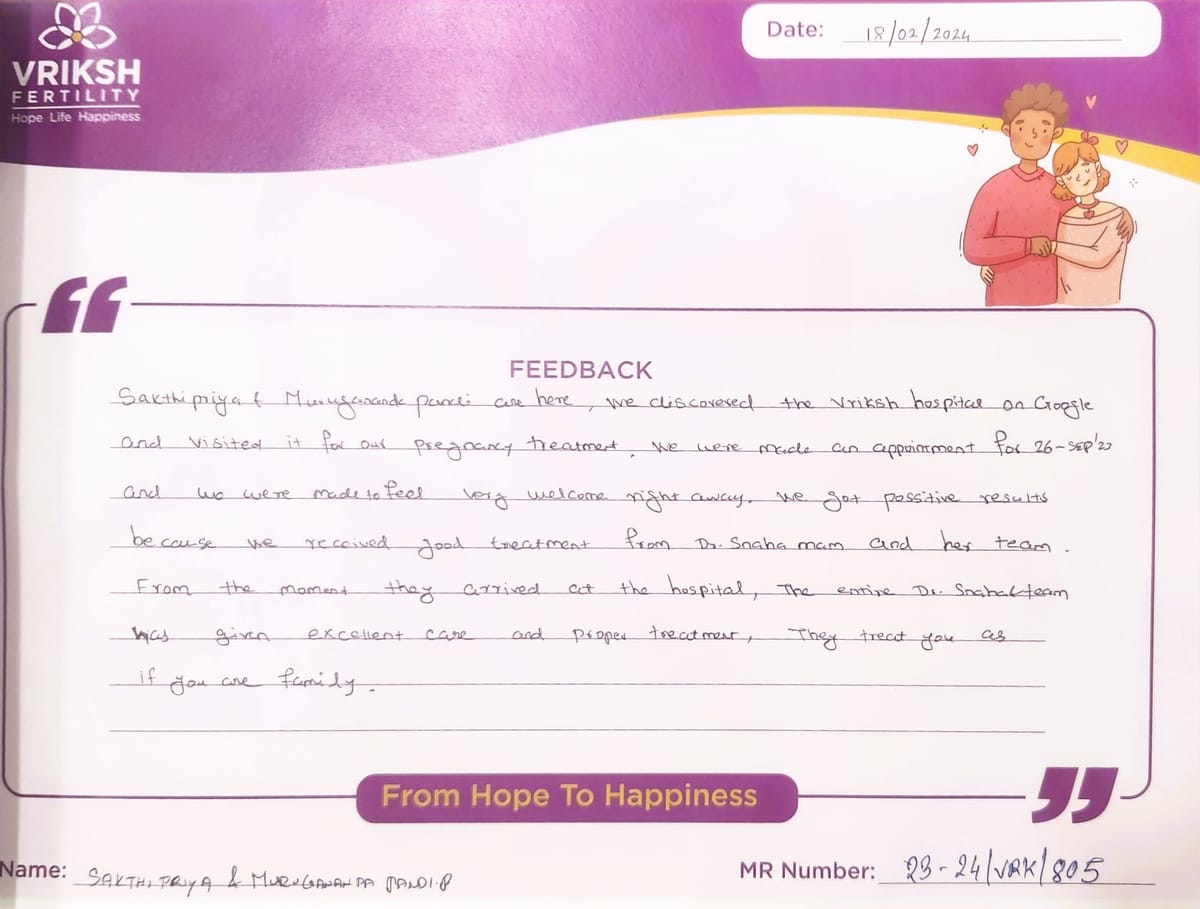 VRIKSH
FERTILITY
Hope Life Happiness
Date: 18/02/2024
FEEDBACK
Sakthi priya & Muruganandapandi are here, we discovered the Vriksh hospital on Google
and visited it for our pregnancy treatment. We were made an appointment for 26-SEP'
and we were made to feel very welcome right away. We got possitive results
because we received good treatment from Dr. Snaha mam and her team.
From the moment they arrived at the hospital, The entire Dr. Snaha & team
was given excellent care and proper treatment, They treat you as
if you are family.
From Hope To Happiness
Name: SAKTHI PRIYA & MURUGANANDA PANDI.P
MR Number: 23-24/VRK/805